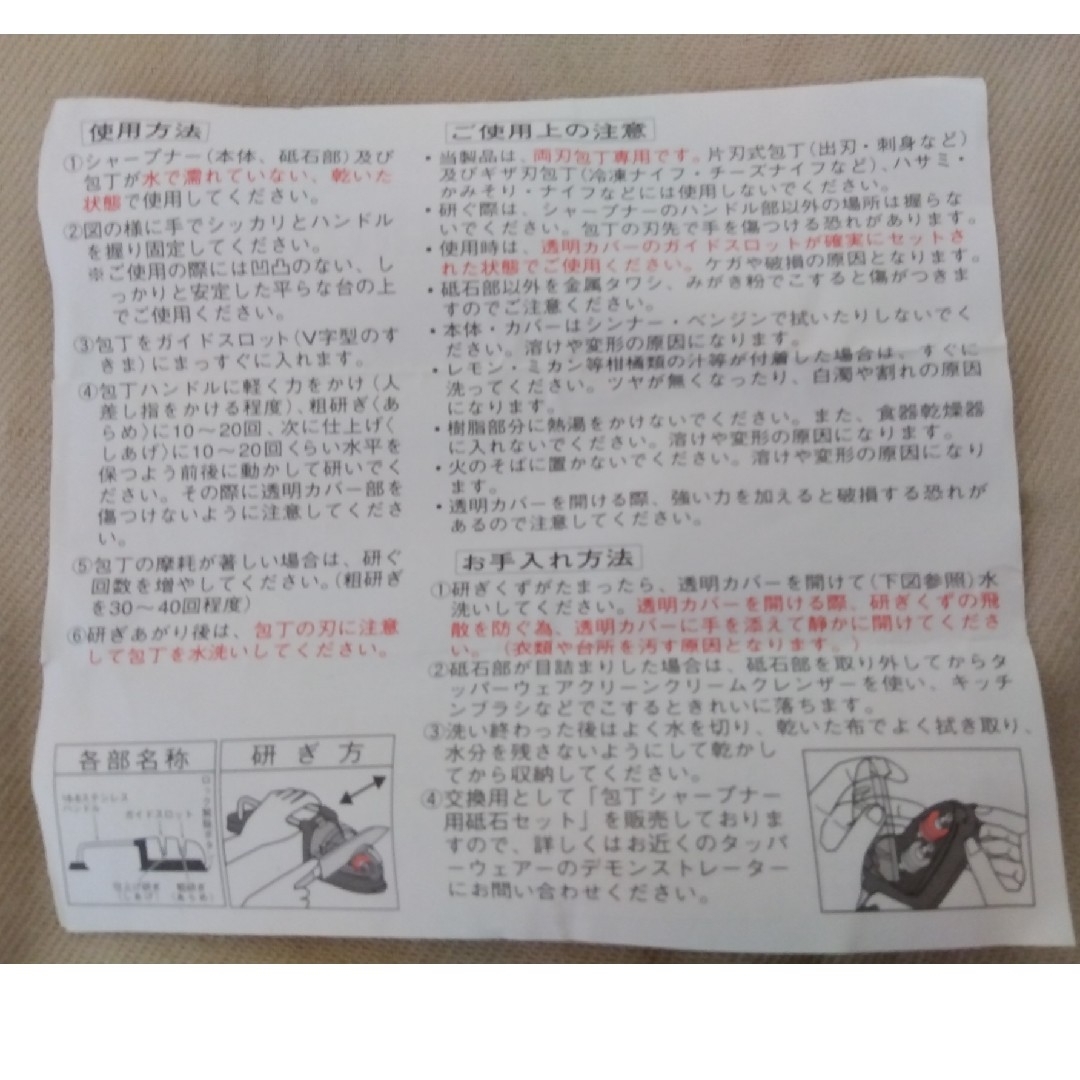 使用方法
①シャープナー(本体、砥石部)及び
包丁が水で濡れていない、乾いた
状態で使用してください。
②図の様に手でシッカリとハンドル
を握り固定してください。
※ご使用の際には凹凸のない、し
っかりと安定した平らな台の上
でご使用ください。
③包丁をガイドスロット(V字型のす
きま)にまっすぐに入れます。
④包丁ハンドルに軽く力をかけ(人
差し指をかける程度)、粗研ぎ〈あ
らめ〉に10〜20回、次に仕上げ〈
しあげ〉に10〜20回くらい水平を
保つよう前後に動かして研いでく
ださい。その際に透明カバー部を
傷つけないように注意してくださ
い。
⑤包丁の摩耗が著しい場合は、研ぐ
回数を増やしてください。(粗研ぎ
を30〜40回程度)
⑥研ぎあがり後は、包丁の刃に注意
して包丁を水洗いしてください。
各部名称
18-8ステンレス
ハンドル
ガイドスロット
研ぎ方
ご使用上の注意
・当製品は、両刃包丁専用です。片刃式包丁(出刃・刺身など)
及びギザ刃包丁(冷凍ナイフ・チーズナイフなど)、ハサミ・
かみそり・ナイフなどには使用しないでください。
・研ぐ際は、シャープナーのハンドル部以外の場所は握らな
いでください。包丁の刃先で手を傷つける恐れがあります。
・使用時は、透明カバーのガイドスロットが確実にセットさ
れた状態でご使用ください。ケガや破損の原因となります。
・砥石部以外を金属タワシ、みがき粉でこすると傷がつきま
すのでご注意ください。
・本体・カバーはシンナー・ベンジンで拭いたりしないでく
ださい。溶けや変形の原因になります。
・レモン・ミカン等柑橘類の汁等が付着した場合は、すぐに
洗ってください。ツヤが無くなったり、白濁や割れの原因
になります。
・樹脂部分に熱湯をかけないでください。また、食器乾燥器
に入れないでください。溶けや変形の原因になります。
・火のそばに置かないでください。溶けや変形の原因になり
ます。
・透明カバーを開ける際、強い力を加えると破損する恐れが
あるので注意してください。
お手入れ方法
①研ぎくずがたまったら、透明カバーを開けて(下図参照)水
洗いしてください。透明カバーを開ける際、研ぎくずの飛
散を防ぐ為、透明カバーに手を添えて静かに開けてくださ
い。(衣類や台所を汚す原因となります。)
②砥石部が目詰まりした場合は、砥石部を取り外してからタ
ッパーウェアクリーンクリームクレンザーを使い、キッチ
ンブラシなどでこするときれいに落ちます。
③洗い終わった後はよく水を切り、乾いた布でよく拭き取り、
水分を残さないようにして乾かし
てから収納してください。
④交換用として「包丁シャープナー
用砥石セット」を販売しておりま
すので、詳しくはお近くのタッパ
ーウェアーのデモンストレーター
にお問い合わせください。